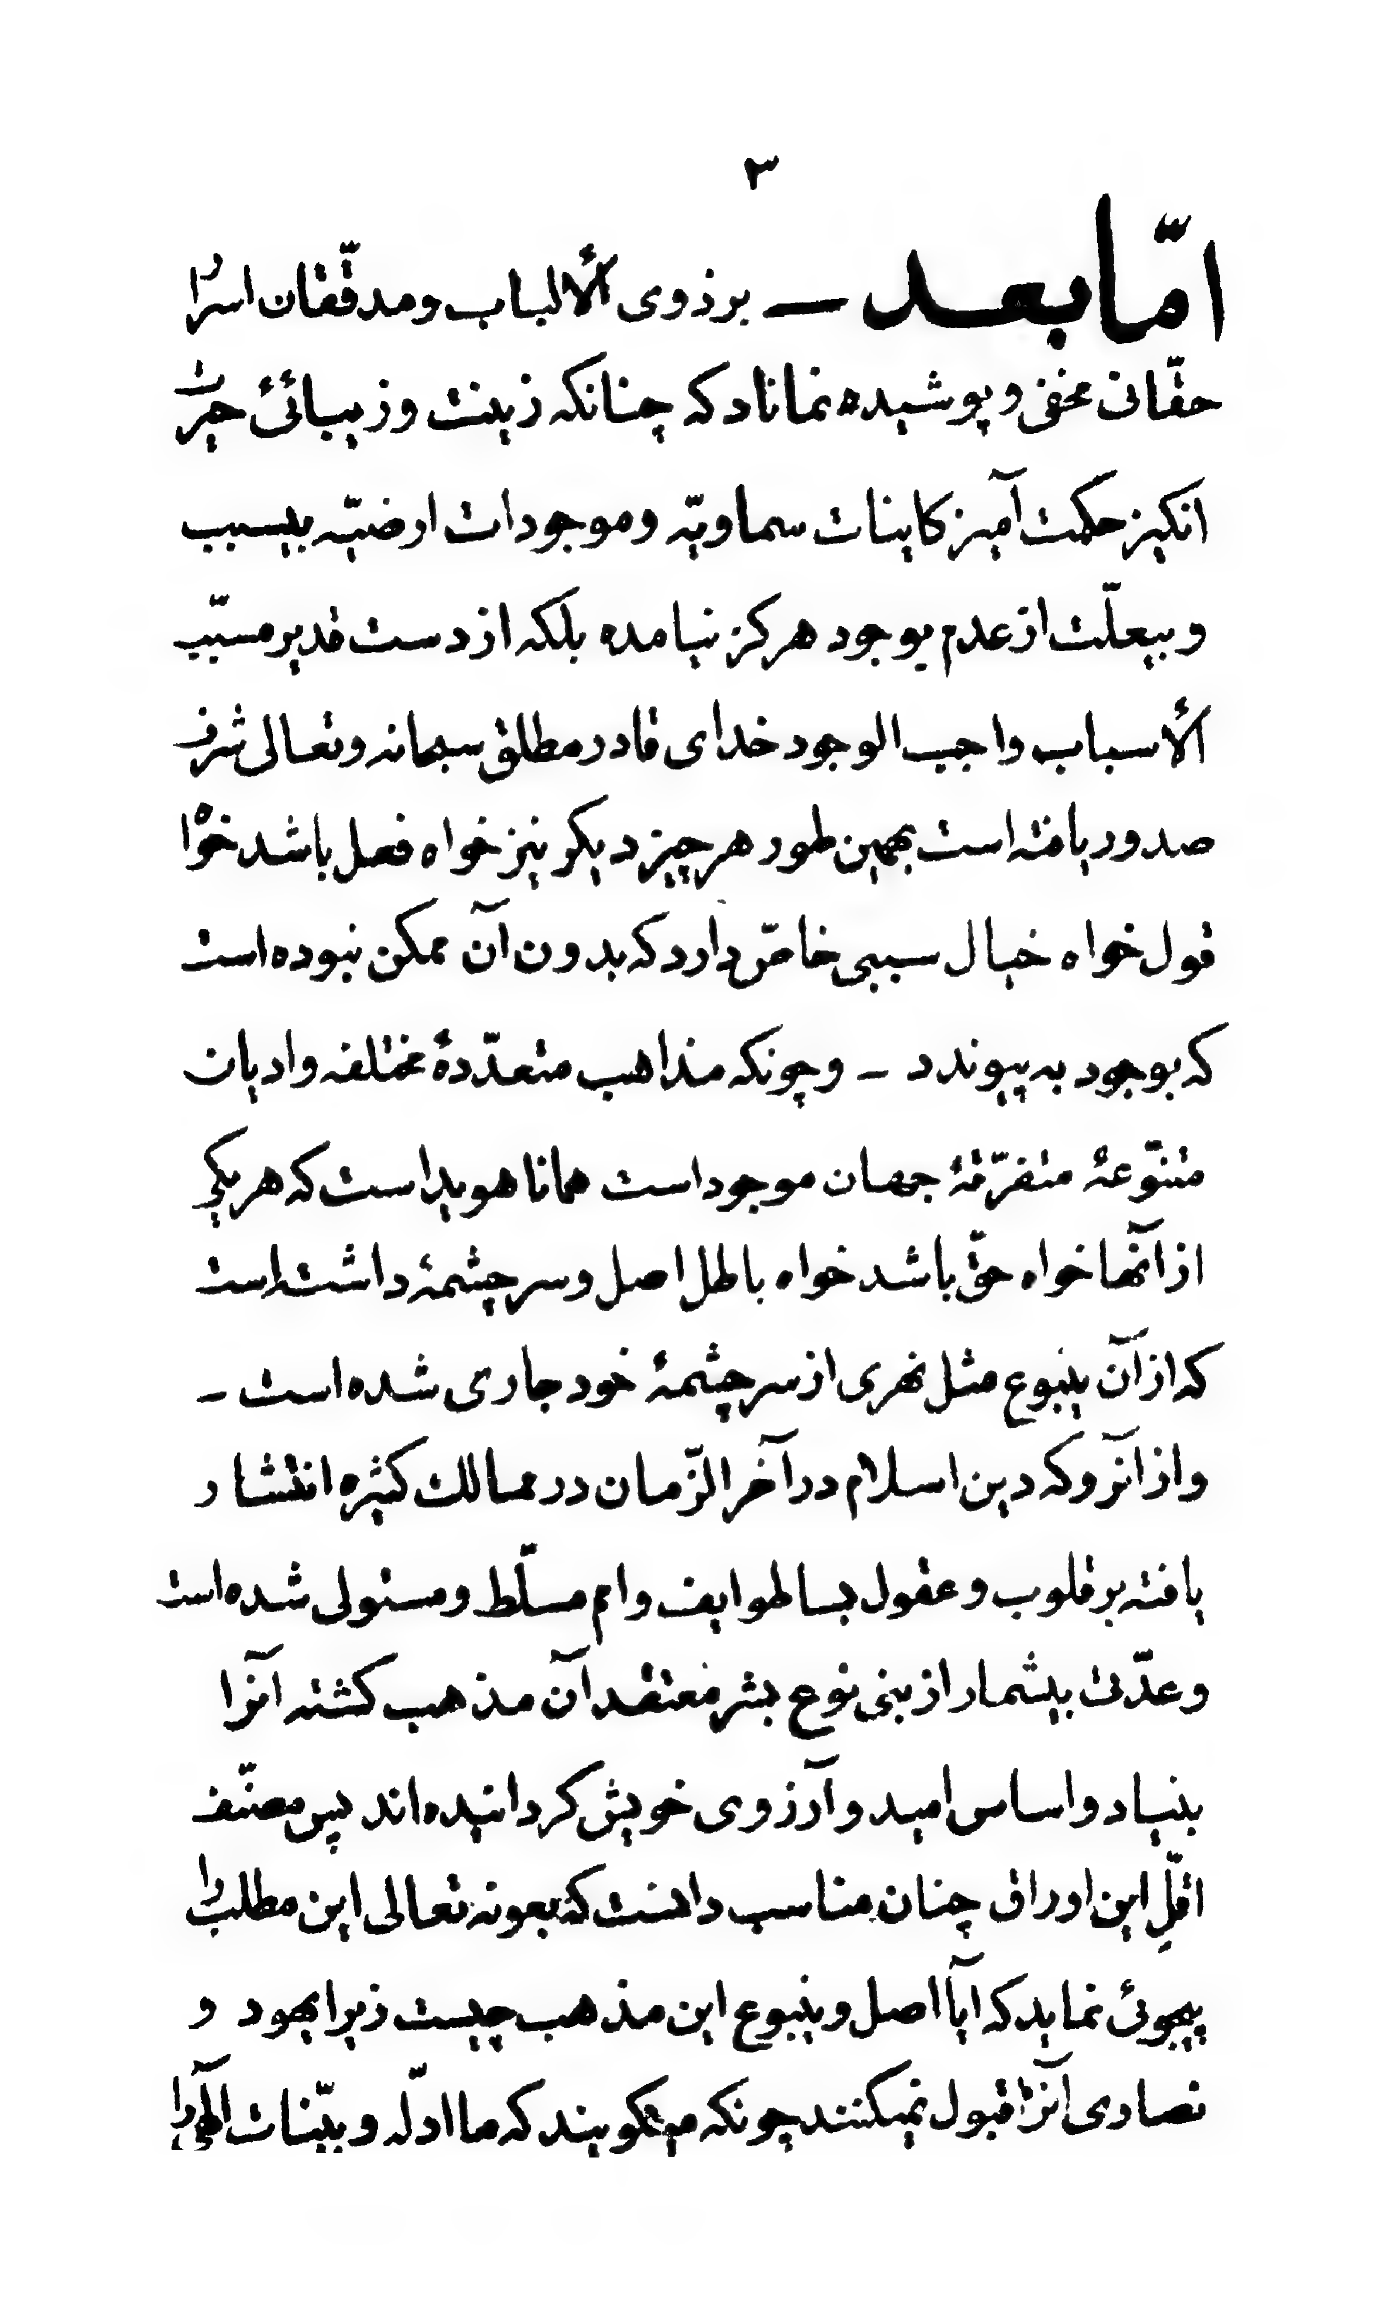 ۳
امّا بعد ــ بر ذوی الألباب و مدقّقان اسرار
حقّانی مخفی و پوشیده نماناد که چنانکه زینت و زیبائیٔ حیرت
انکیز حکمت آمیز کاینات سماویّه و موجودات ارضیّه بیسبب
و بیعلّت از عدم بوجود هرکز نیامده بلکه از دست قدیر مسبّب
الأسباب واجب الوجود خدای قادر مطلق سبحانه و تعالی شرف
صدور یافته است بهمین طور هر چیز دیکر نیز خواه فعل باشد خواه
قول خواه خیال سببی خاصّ دارد که بدون آن ممکن نبوده است
که بوجود به پیوندد ـ و چونکه مذاهب متعدّدهٔ مختلفه و ادیان
متنوّعهٔ متفرّقهٔ جهان موجود است همانا هویدا است که هر یکی
از آنها خواه حقّ باشد خواه باطل اصل و سرچشمهٔ داشته است
که از آن ینبوع مثل نهری از سرچشمهٔ خود جاری شده است ـ
و از آنرو که دین اسلام در آخر الزّمان در ممالک کثیره انتشار
یافته بر قلوب و عقول بسا طوایف و امم مسلّط و مستولی شده است
و عدّتی بیشمار از بنی نوع بشر معتقد آن مذهب کشته آنرا
بنیاد و اساس امید و آرزوی خویش کردانیده اند پس مصنّف
اقلِّ این اوراق چنان مناسب دانست که بعونه تعالی این مطلب را
پیجوئی نماید که آیا اصل و ینبوع این مذهب چیست زیرا یهود و
نصاری آنرا قبول نمیکنند چونکه میکویند که ما ادلّه و بیّنات الٓهی را